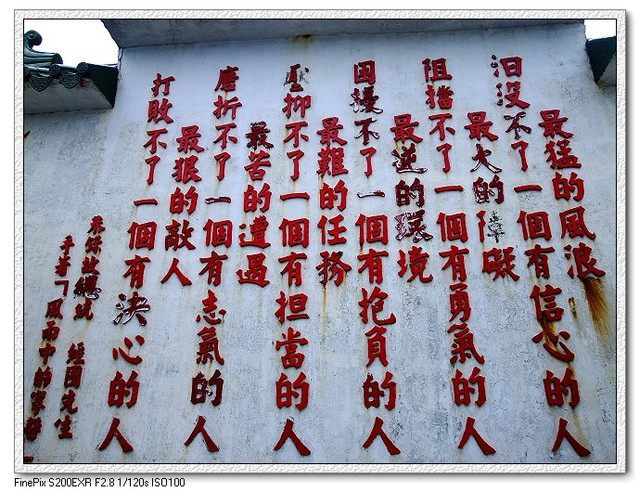 最猛的風浪
汨沒不了一個有信心的人
最大的障礙
阻擋不了一個有勇氣的人
最逆的環境
困擾不了一個有抱負的人
最難的任務
壓抑不了一個有担當的人
最苦的遭遇
磨折不了一個有志氣的人
最狠的敵人
打敗不了一個有決心的人
錄故總統 經國先生
手著「風雨中的寧靜
FinePix S200EXR F2.8 1/120s ISO100